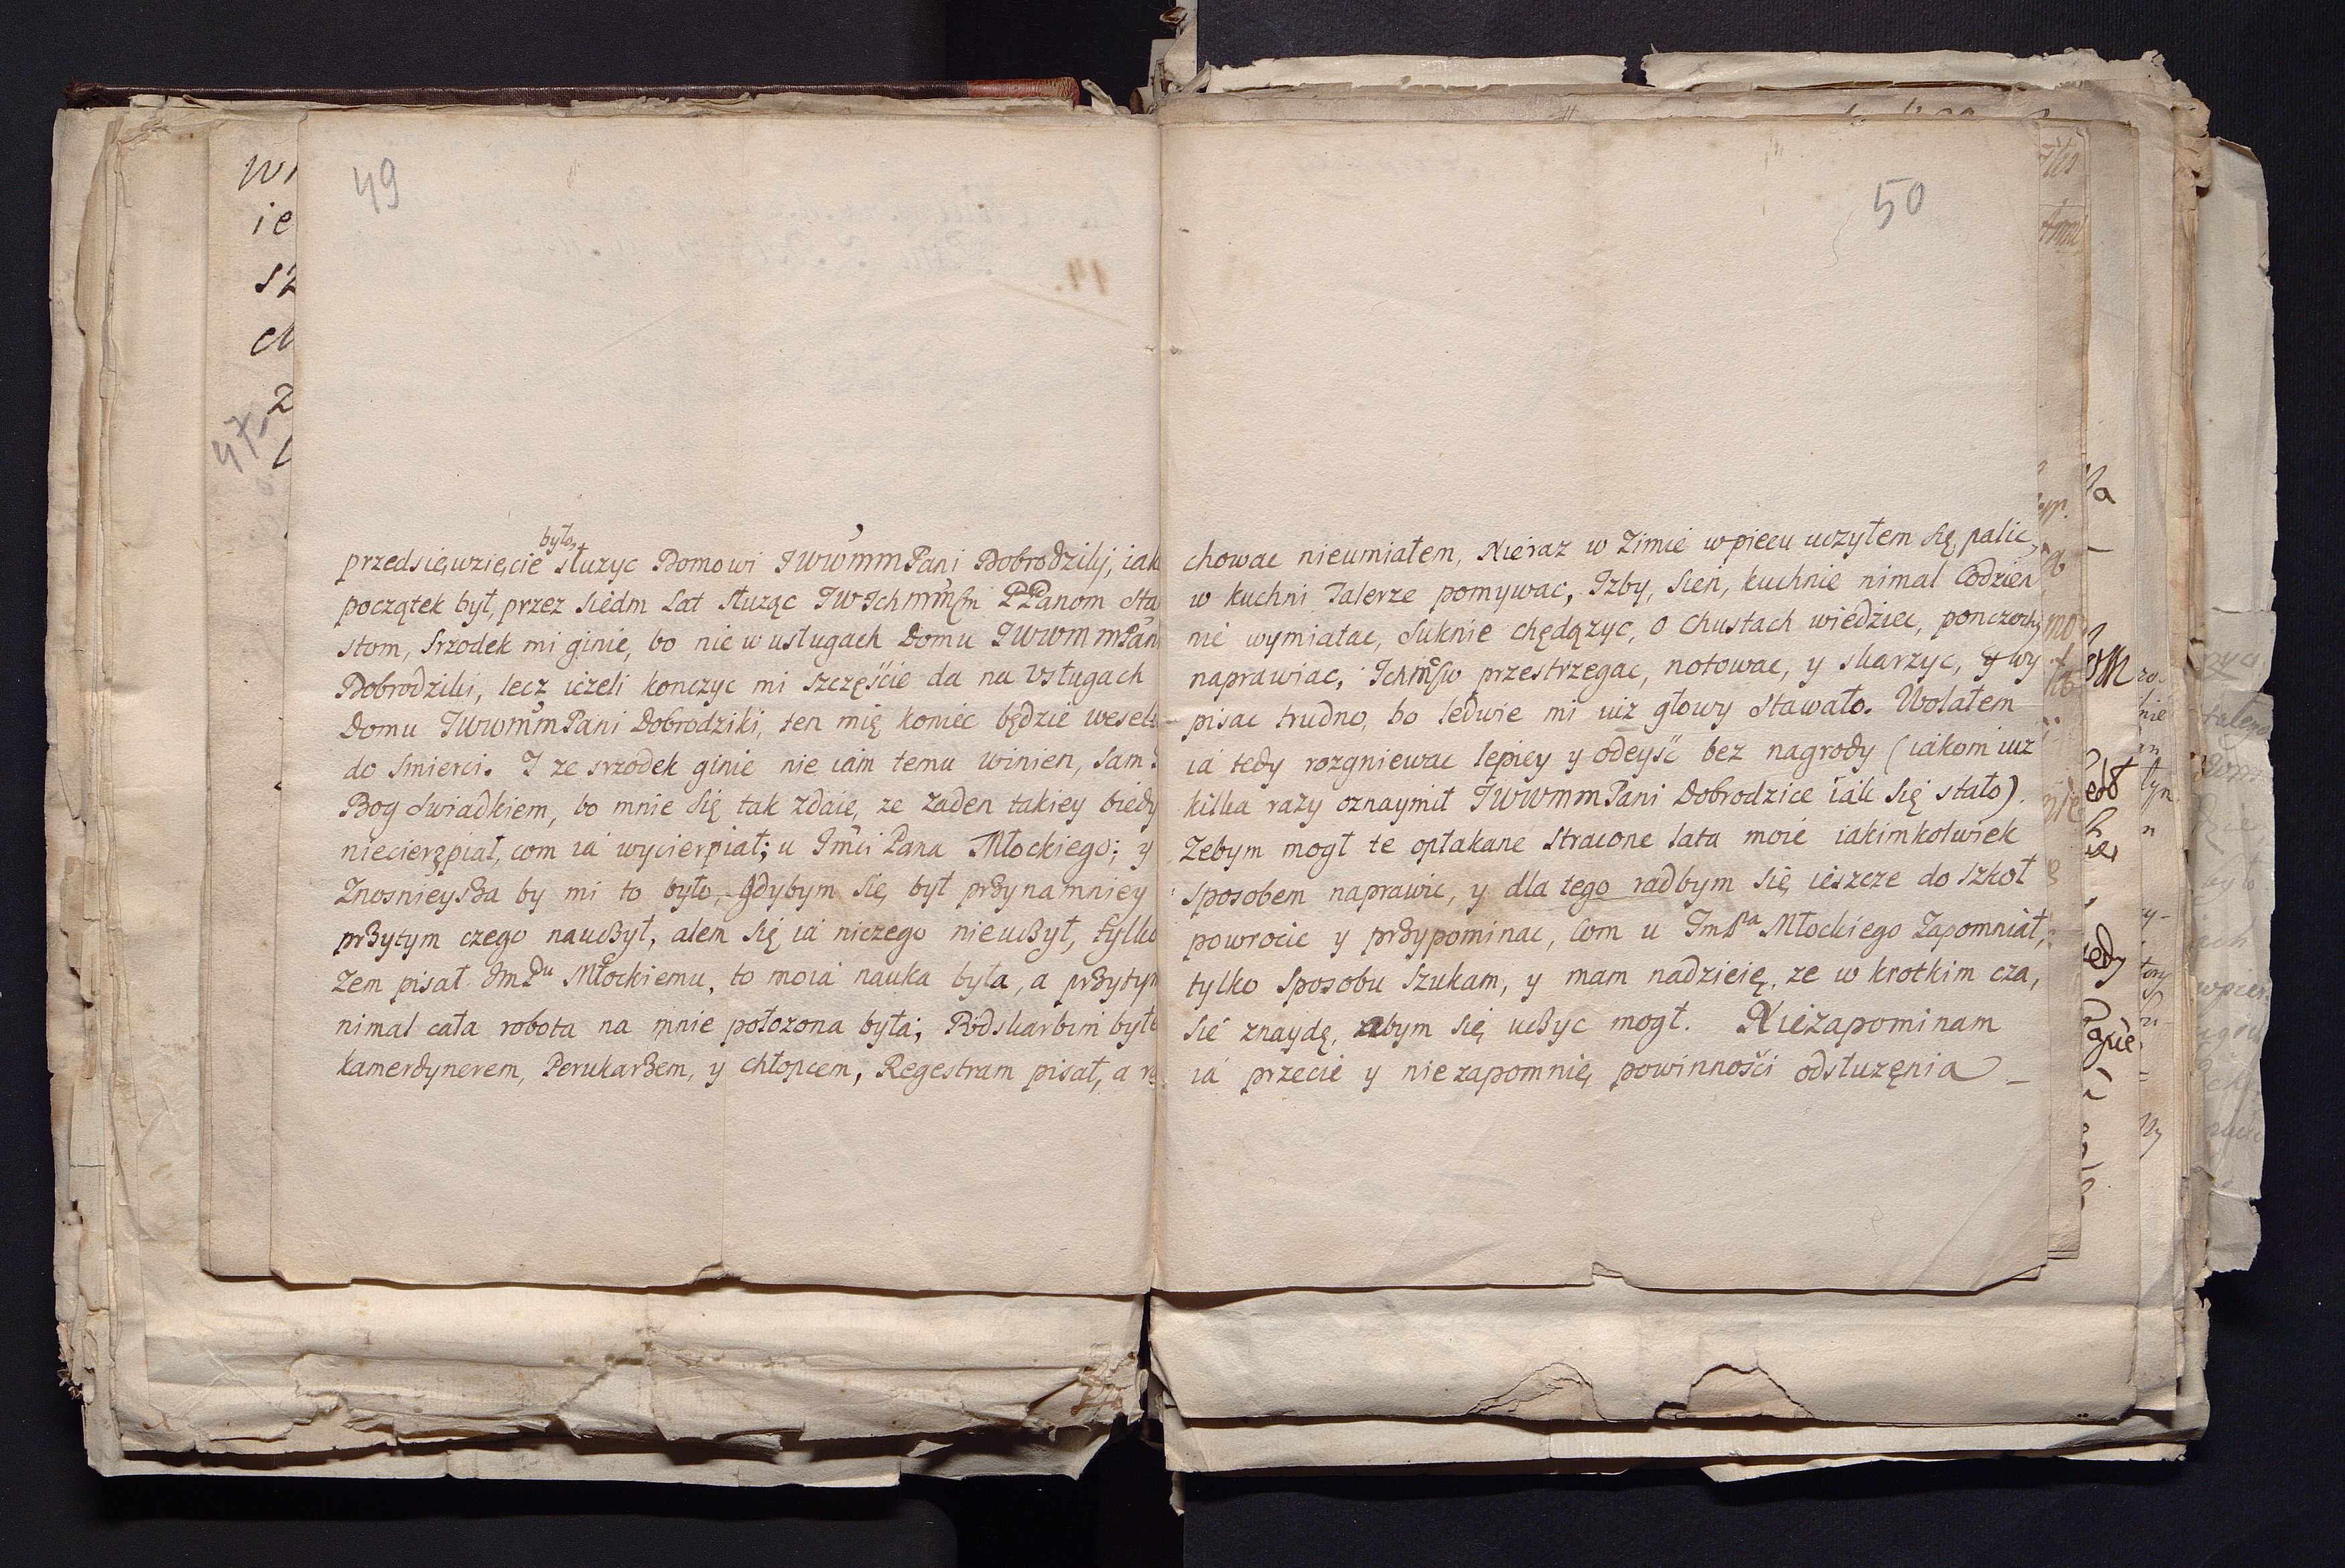 49
było,
przedsięwzięcie służyc Domowi JWWmm Pani Dobrodziki, iak
początek był, przez siedm Lat służąc JWIchmm PPanom Sta
stom, srzodek mi ginie, bo nie w usługach Domu JWWmm Pan
Dobrodziki, lecz ieżeli konczyc mi szczęście da na Usługach
Domu JWWmm Pani Dobrodziki, ten mię koniec będzie wesel
do smierci. I ze srzodek ginie nie iam temu winien, sam
Bog swiadkiem, bo mnie się tak zdaie, ze zaden takiey biedy
niecierzpiał, com ia wycierpiał; u Jmci Pana Młockiego; y
Znosnieysza by mi to było, gdybym się był przynamniey
przytym czego nauczył, alem się ia niczego nieuczył, tylko
Zem pisał JmPu Młockiemu, to moia nauka była, a przytym
nimal cała robota na mnie położona była; Podskarbim był
kamerdynerem, Perukarzem, y chłopcem, Regestram pisał, a
50
chowac nieumiałem, Nieraz w Zimie wpiecu uczyłem się palic,
w kuchni Talerze pomywac, Izby, sien, kuchnie nimal Codzien
nie wymiatac, suknie chędązyc, o chustach wiedziec, ponczochy
naprawiac, przestrzegac, notowac, y skarzyc, y wy
pisac trudno, bo ledwie mi iuz głowy stawało. Wolałem
ia tedy rozgniewac lepiey y odeyść bez nagrody (iakom iuz
kilka razy oznaymił JWWmm Pani Dobrodzice iak się stało).
Zebym mogł te opłakane stracone lata moie iakimkolwiek
sposobem naprawic, y dla tego radbym się ieszcze do szkoł
powrocic y przypominac, Com u JmPa Młockiego Zapomniał,
tylko sposobu szukam, y mam nadzieię, ze w krotkim cza,
sie znaydę, abym się uczyc mogł. Niezapominam
ia przecie y niezapomnię powinności odsłuzęnia
47